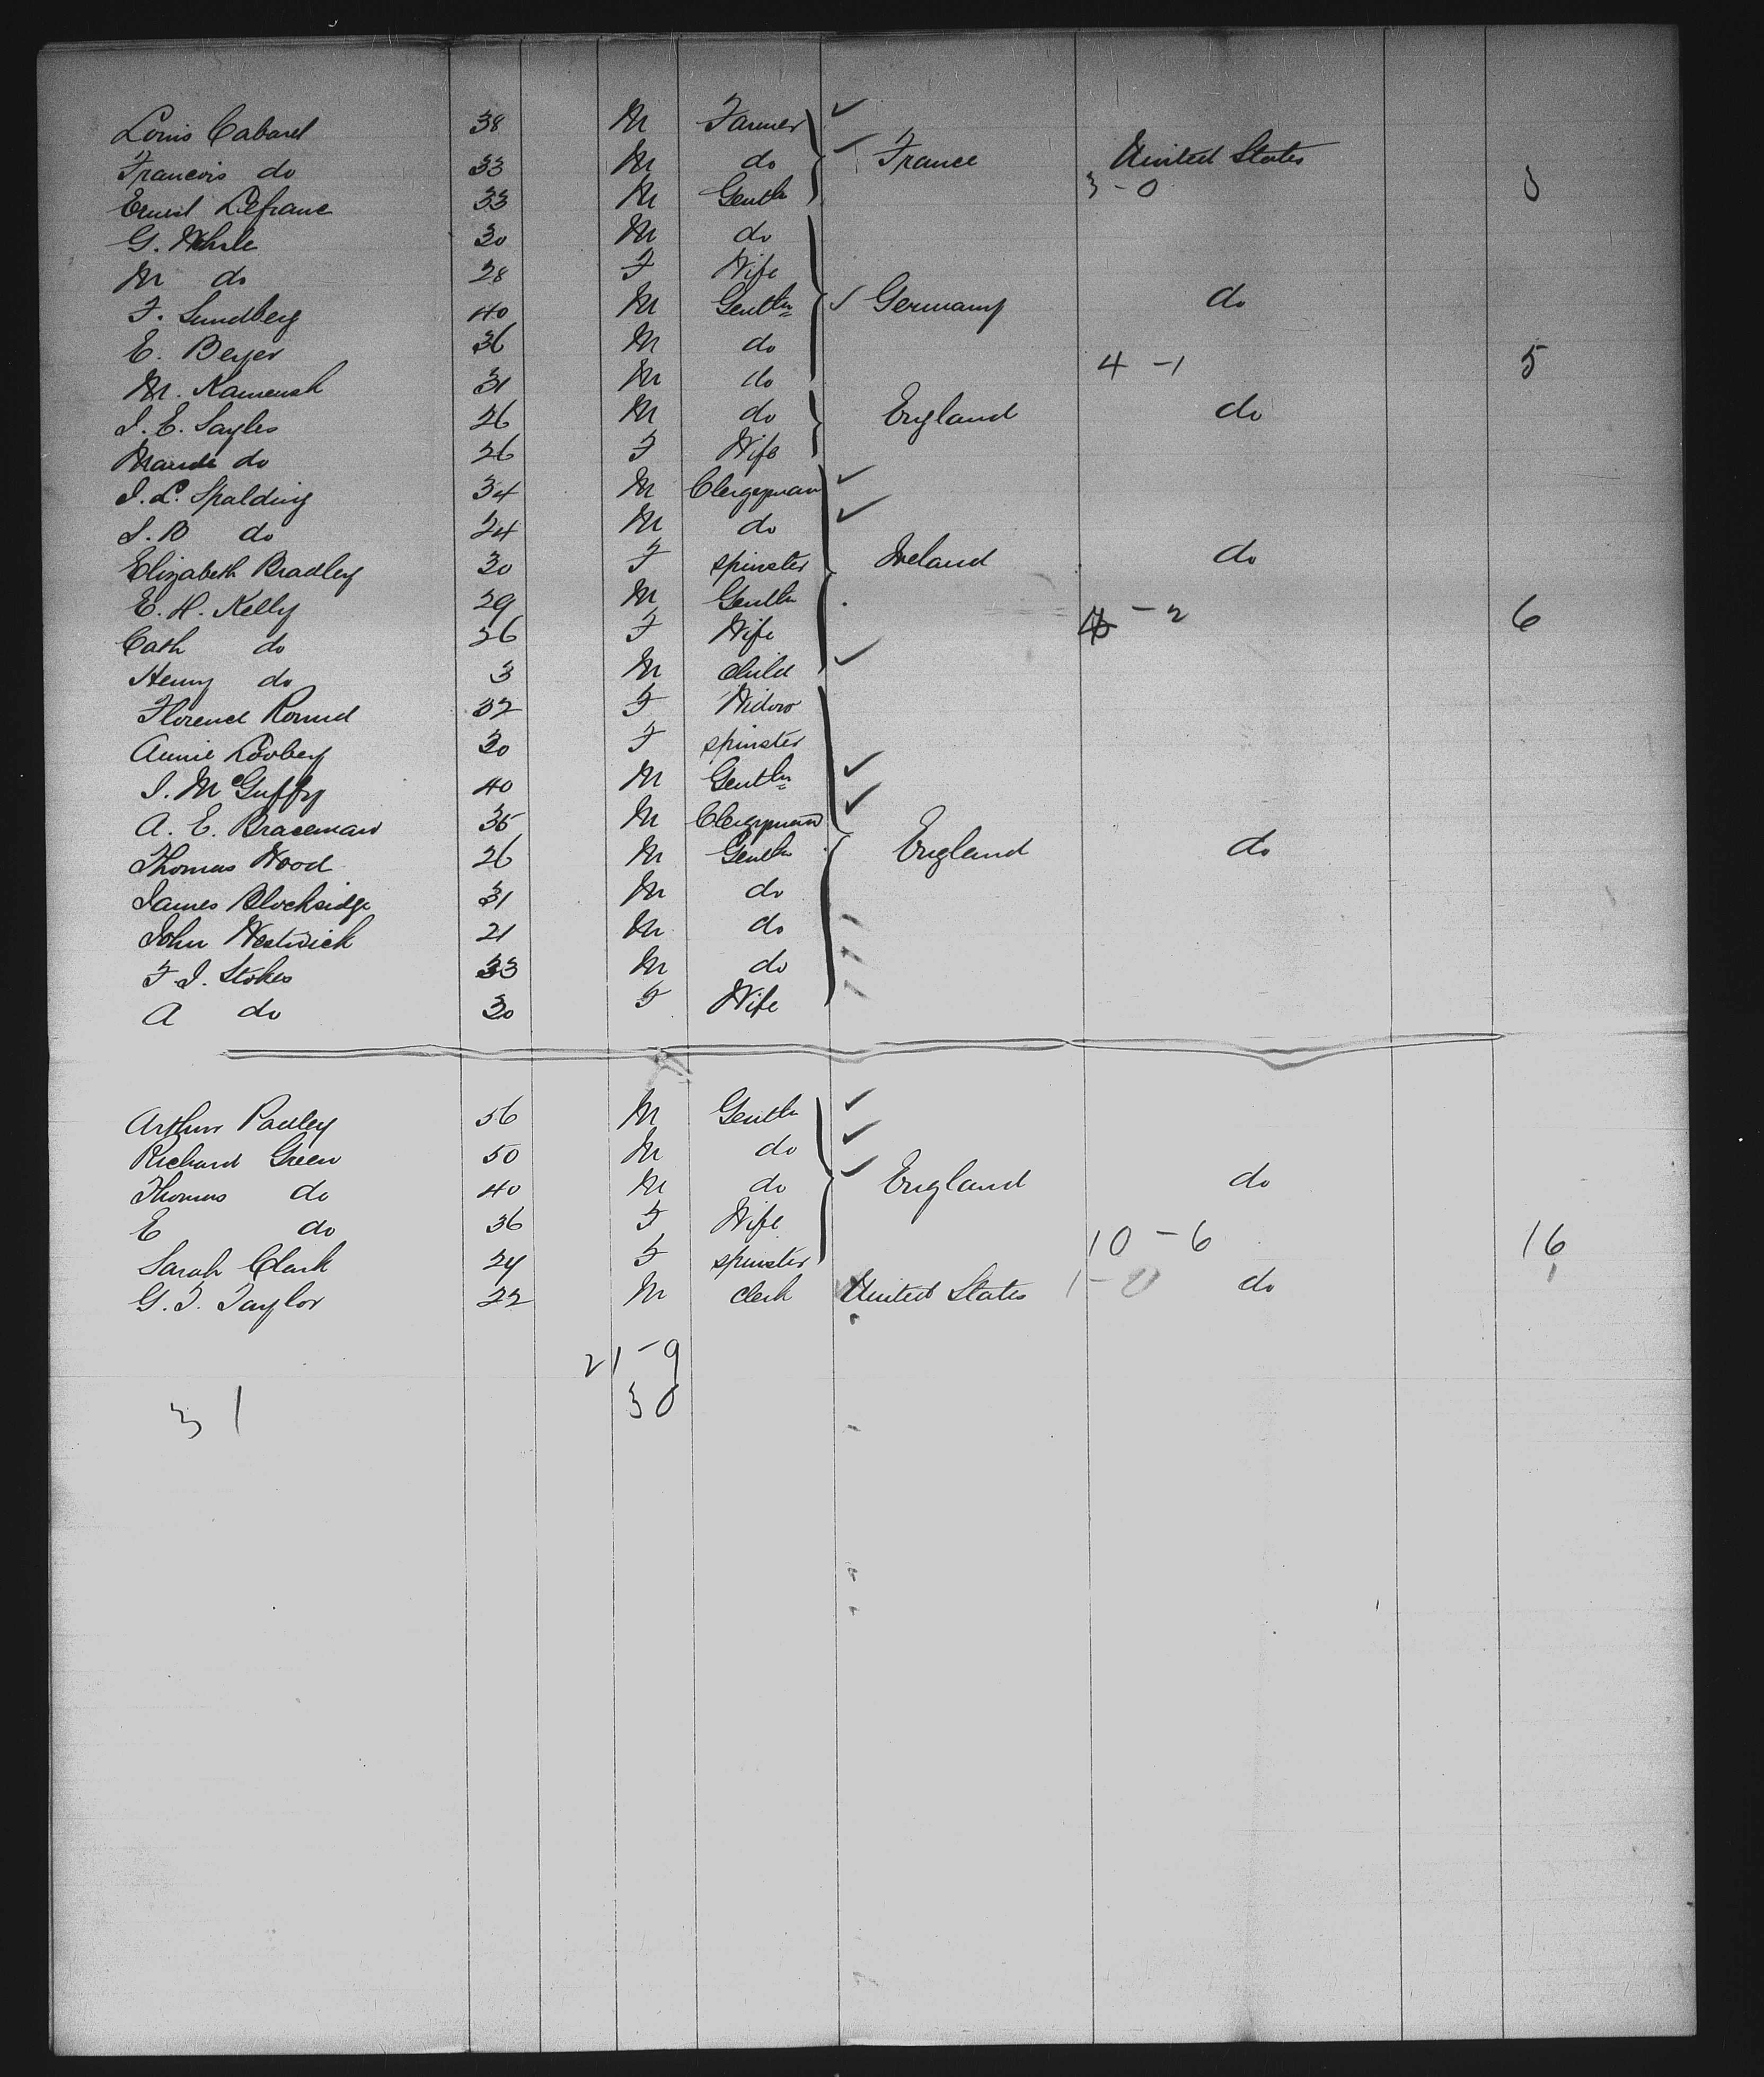 Louis Cabarel 38 M Farmer
Francois do 33 M do France United States
Ernest Lefranc 33 M Gentln 3 - 0 3
G. Wehrle 30 M do
M do 28 F Wife
F. Sundberg 40 M Gentln Germany do
E. Beyer 36 M do
M. Kamensh 31 M do 4 - 1 5
J. E. Sayles 26 M do England do
Maude do 26 F Wife
J. L. Spalding 34 M Clergyman
S. B do 24 M do
Elizabeth Bradley 30 F spinster Ireland do
E. H. Kelly 29 M Gentln
Cath do 26 F Wife - 2 6
Henry do 3 M child
Florence 32 F Widow
Annie 30 F spinster
J. McGuffy 40 M Gentln
A. E. Braceman 35 M Clergyman
Thomas Wood 26 M Gentln England do
James Blocksidge 31 M do
John Westwick 21 M do
F. J. Stokes 33 M do
A do 30 F Wife
Arthur Pauley 56 M Gentln
Richard Green 50 M do
Thomas do 40 M do England do
E do 36 F Wife
Sarah Clark 24 F spinster 10 - 6 16
G. T. Taylor 22 M clerk United States 1 - 0 do 1
21 - 9
31 30